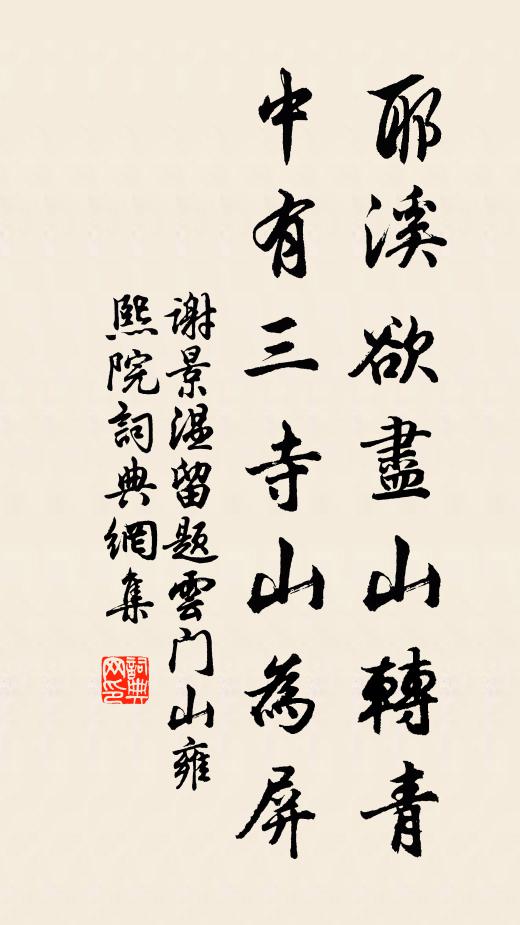 耶溪欲盡山轉青
中有三寺山為屏
谢景温留题雲门山雍
熙院詞典網集
詞典网印